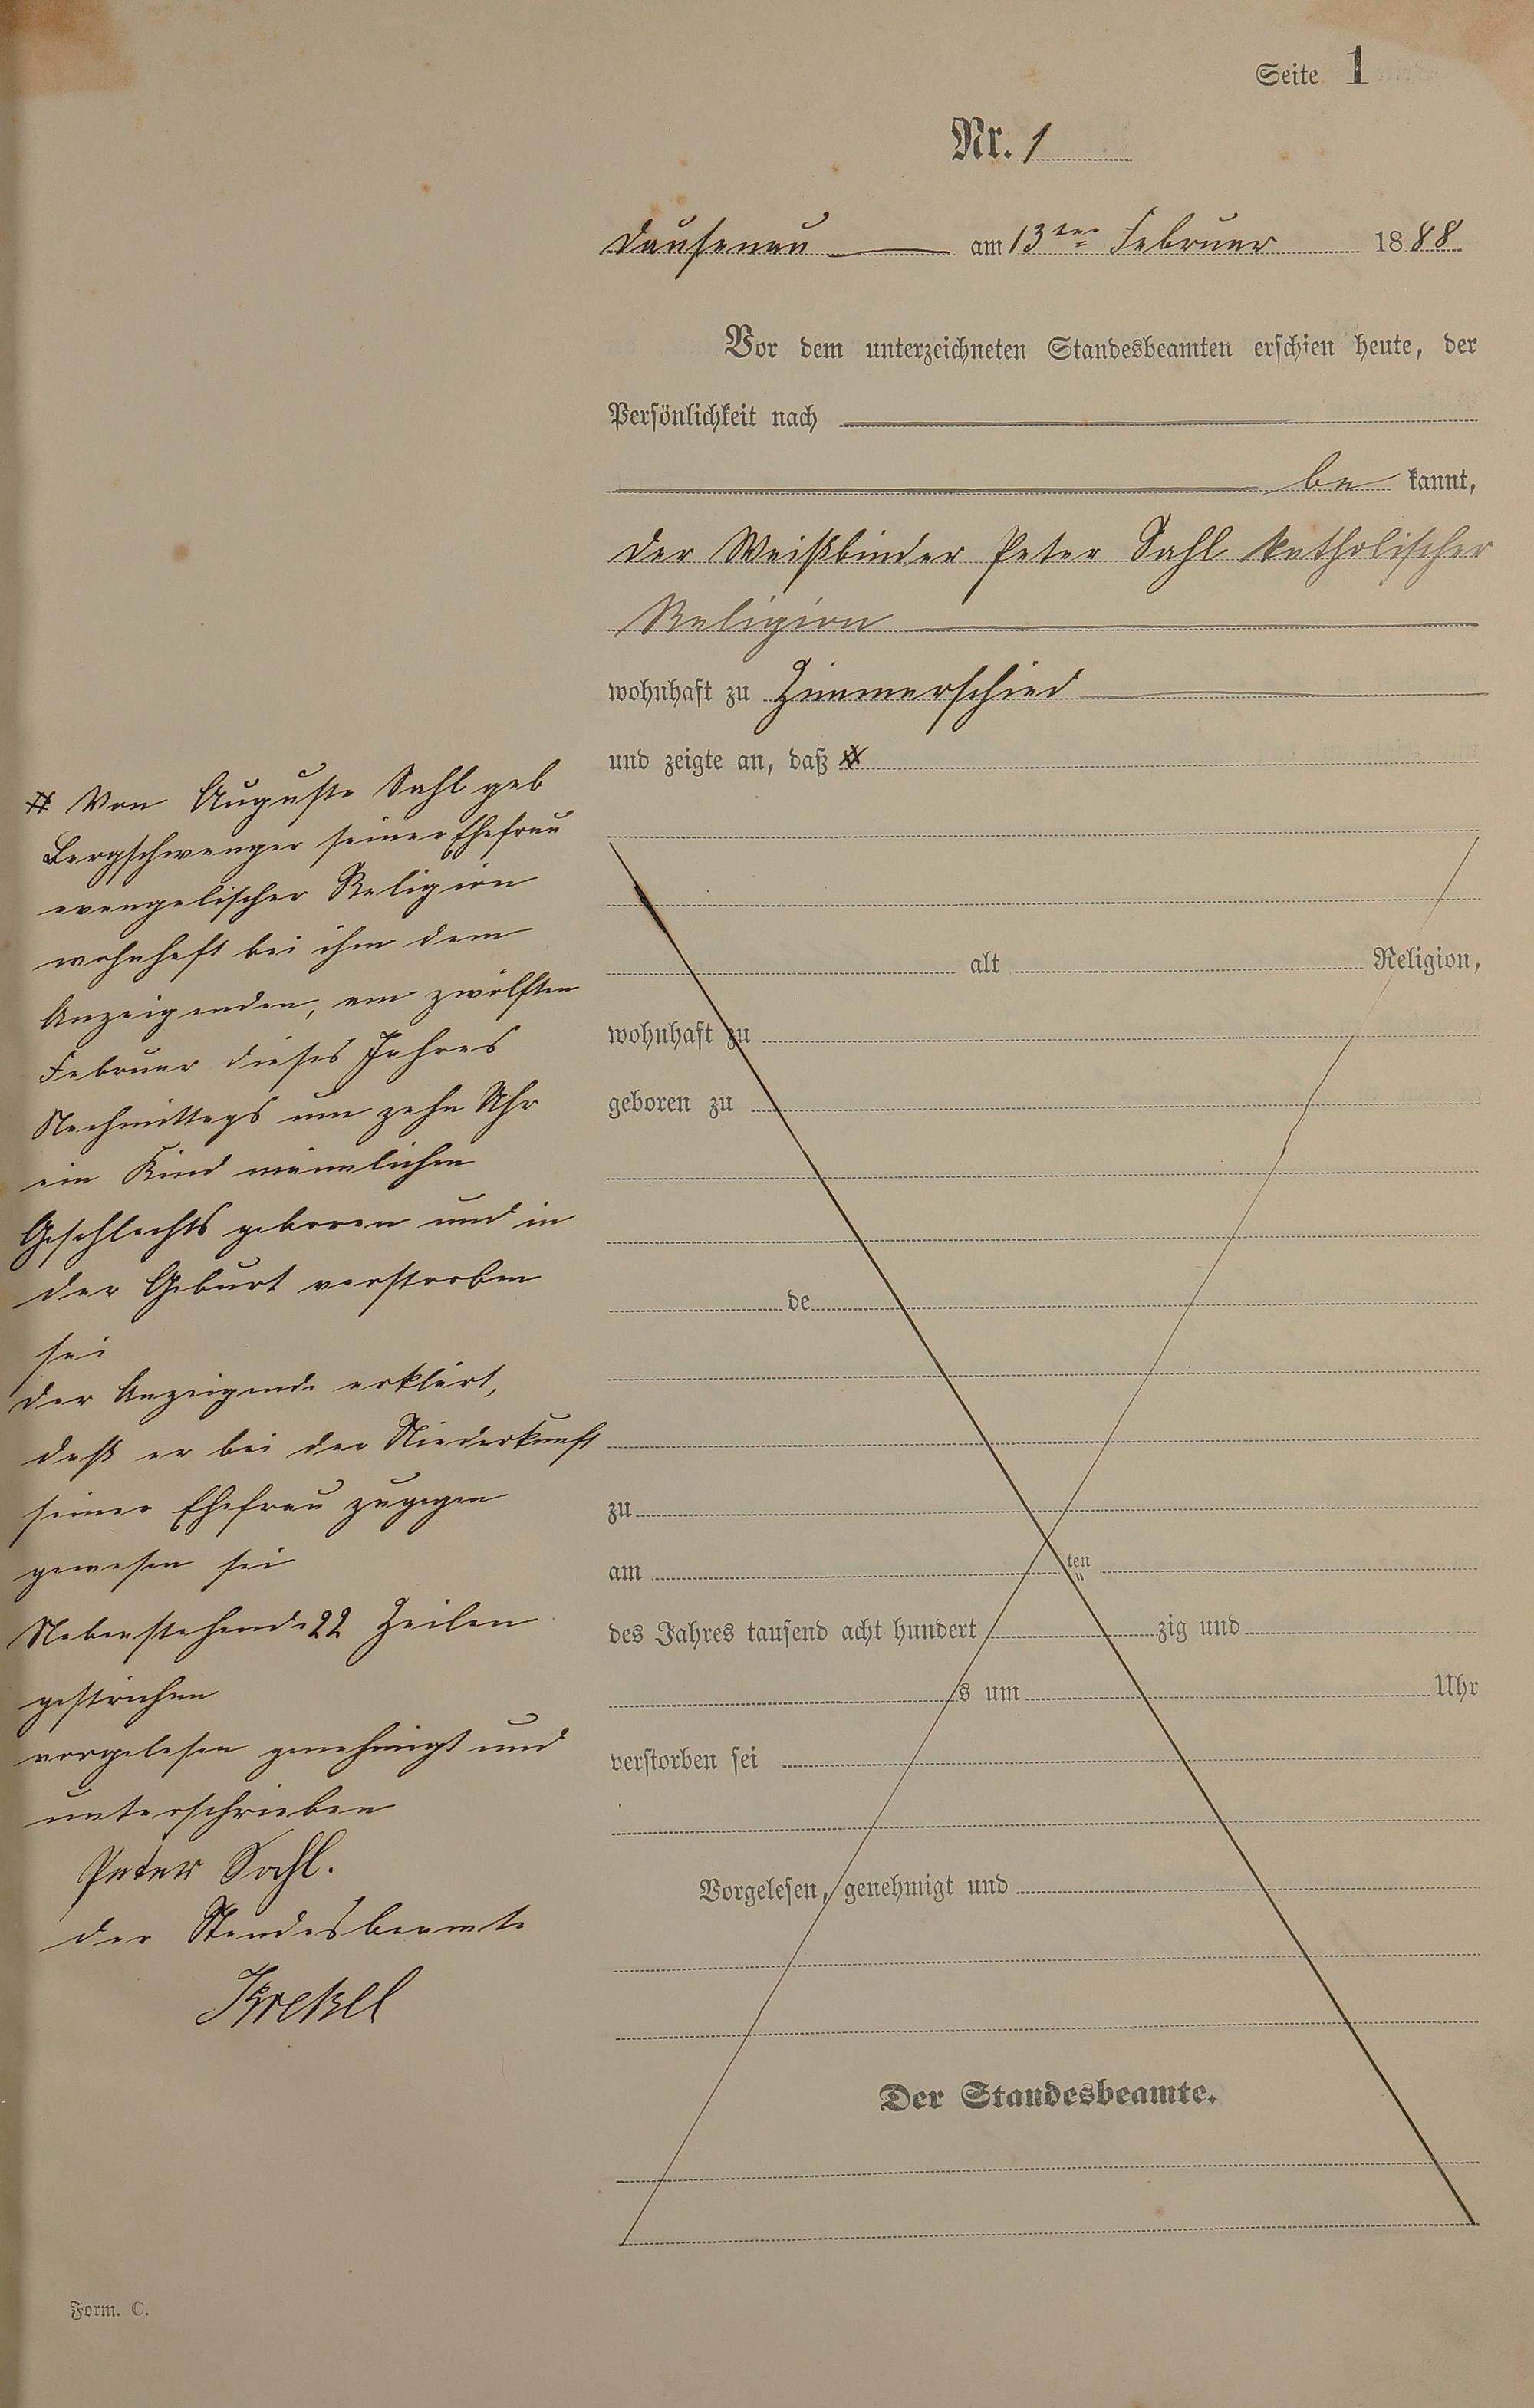 Seite 1
Nr. 1
Dausenau am 13ten Februar 1888
Vor dem unterzeichneten Standesbeamten erschien heute, der
Persönlichkeit nach
be kannt,
der Weißbinder Peter Sahl katholischer
Religion
wohnhaft zu Zimmerschied
und zeigte an, daß #
# Von Auguste Sahl geb
Bergschwenger seiner Ehefrau
evangelischer Religion
wohnhaft bei ihm dem
Anzeigenden, am zwölften
Februar dieses Jahres
Nachmittags um zehn Uhr
ein Kind männlichen
Geschlechts geboren und in
der Geburt verstorben
sei
der Anzeigende erklärt,
daß er bei der Niederkunft
seiner Ehefrau zugegen
gewesen sei
Nebenstehende 22 Zeilen
gestrichen
vorgelesen genehmigt und
unterschrieben
Peter Sahl.
der Standesbeamte
Krekel
alt Religion,
wohnhaft zu
geboren zu
de
zu
am ten
des Jahres tausend acht hundert zig und
s um Uhr
verstorben sei
Vorgelesen, genehmigt und
Der Standesbeamte.
Form. C.